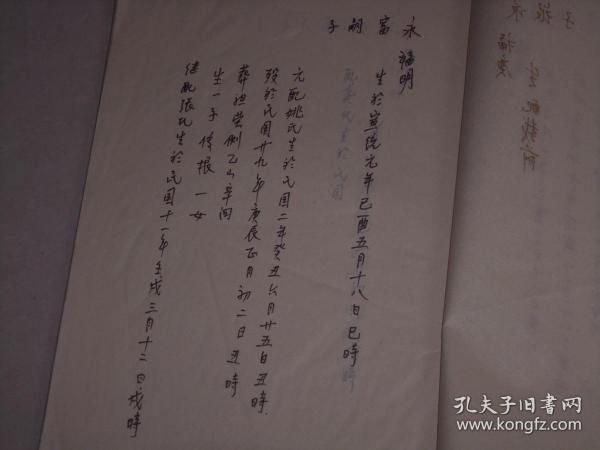 永富嗣子
福明
生於宣統元年己酉五月十八日巳時
元配姚氏生於民国二年癸丑六月廿五日丑時
歿於民国廿九年庚辰正月初二日丑時
葬祖塋側乙山辛向
生一子传根一女
继配张氏生於民国十一年壬戌三月十二日戌時
孔夫子旧书网
www.kongfz.com